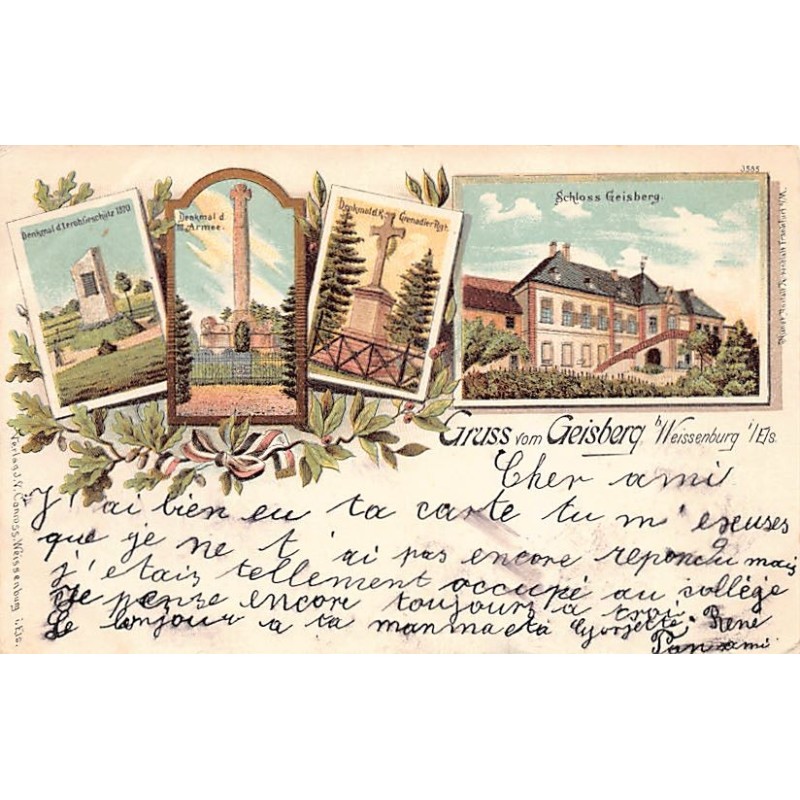 3555
Denkmal d. I. erob. Geschütz 1870
Denkmal d
III. Armee.
Denkmal d. K.
Grenadier Rgt.
Schloss Geisberg.
Gruss vom Geisberg b/Weissenburg i/Els.
Verlag J. V. Weissenburg i. Els.
Cher ami
J'ai bien eu ta carte tu m'exuses
que je ne t'ai pas encore repondu mais
j'etais tellement occupé au collége
Je pense encore toujours a toi
Le bonjour a ta manma et a Gorjette. René
ami